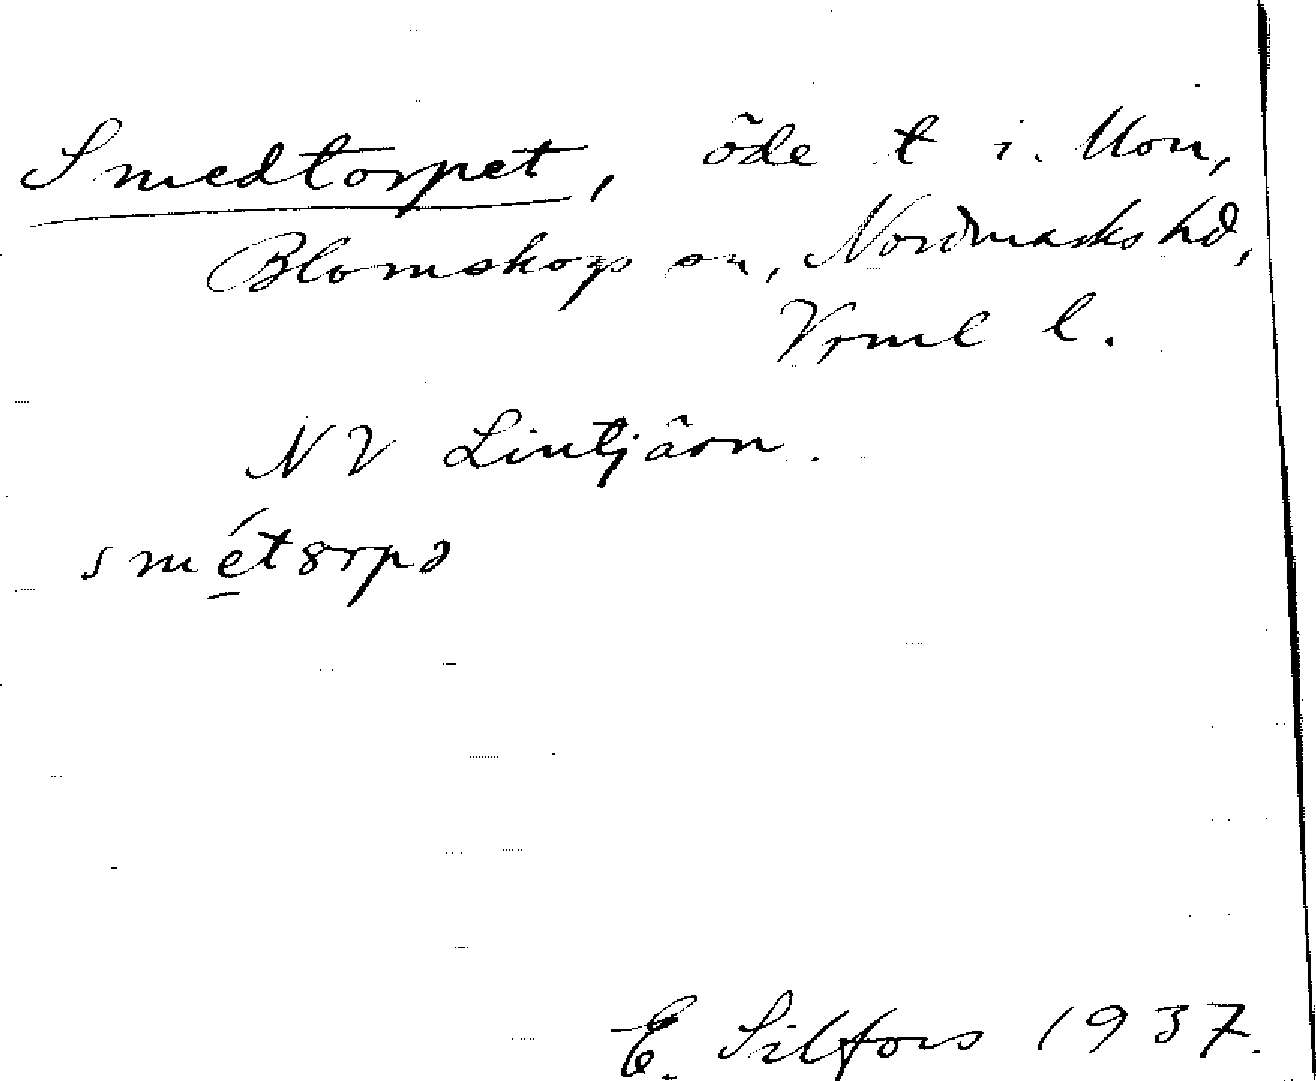 Smedtorpet, öde t i. Mon,
Blomskogs sn, Nordmarks hd,
Vrml l.
NV Lintjärn.
smétȣrpə
E. Silfors 1937.